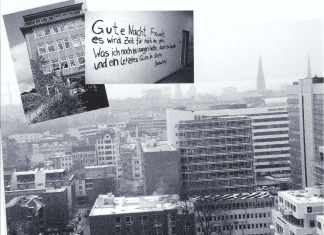 Gute Nacht, Freunde,
es wird Zeit für mich zu gehn.
Was ich noch zu sagen hätte, dauert eine
und ein Letztes Glas im Stehn.